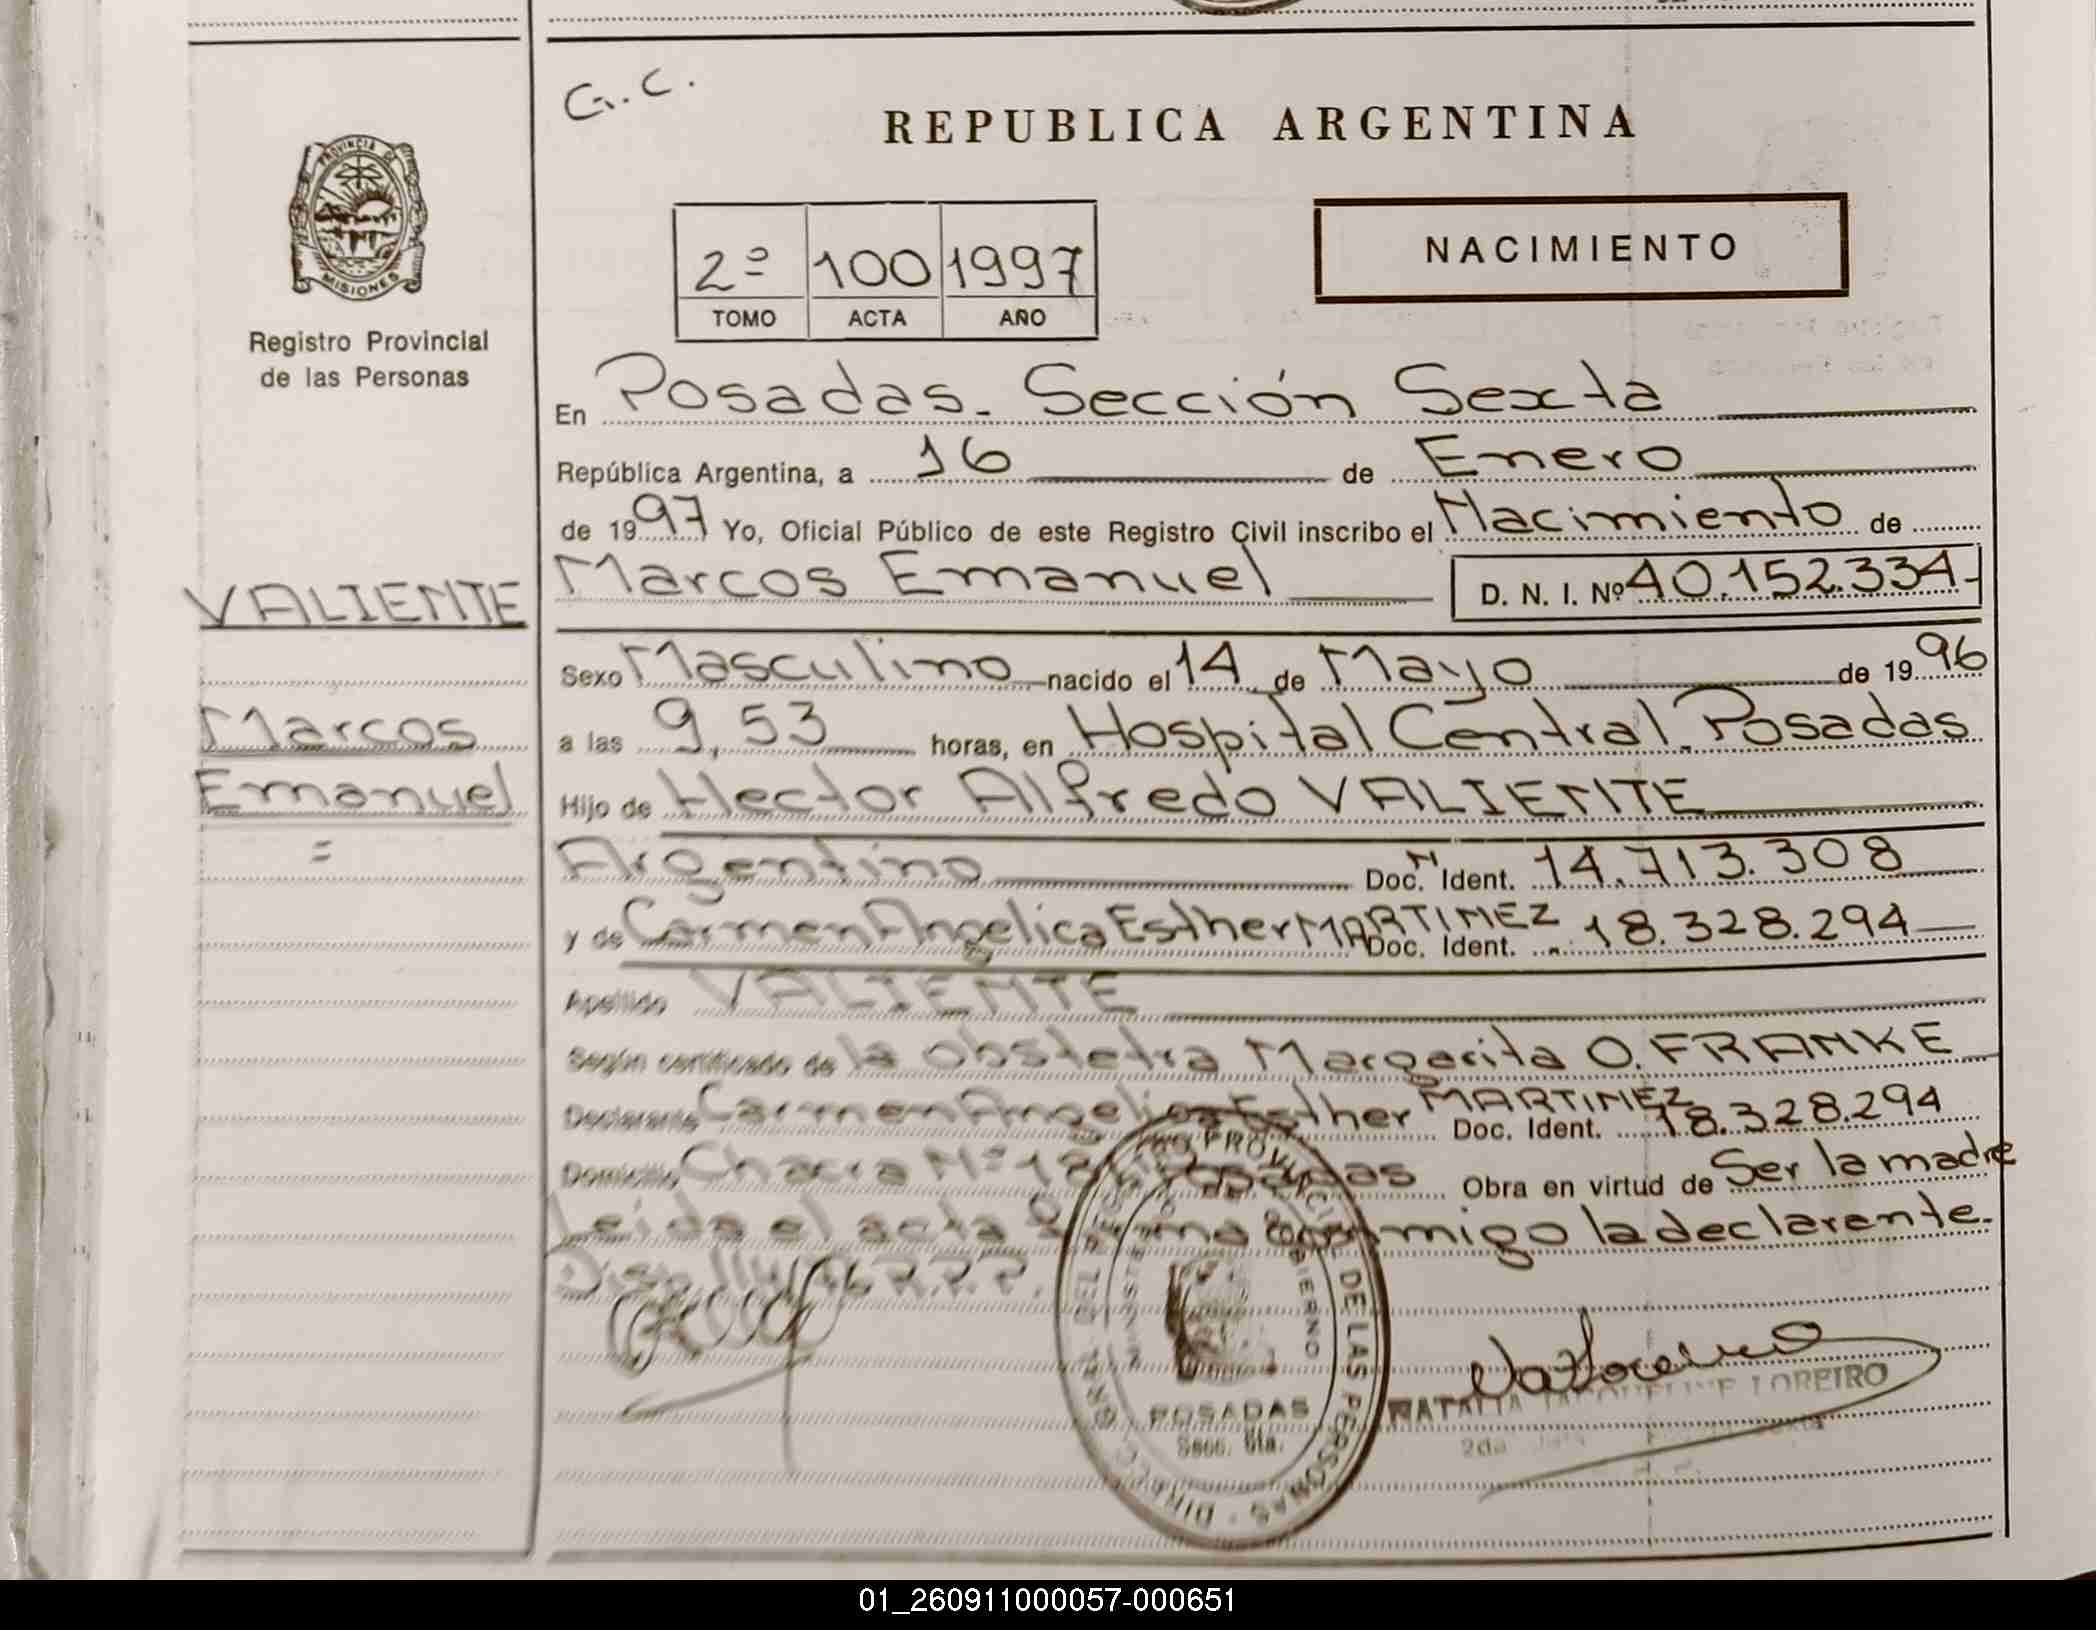 G.C.
PROVINCIA DE
MISIONES
Registro Provincial
de las Personas
REPUBLICA ARGENTINA
2º 100 1997
TOMO ACTA AÑO
NACIMIENTO
En Posadas. Sección Sexta
República Argentina, a 16 de Enero
de 1997 Yo, Oficial Público de este Registro Civil inscribo el Nacimiento de
VALIENTE
Marcos Emanuel D. N. I. Nº 40.152.334-
Sexo Masculino nacido el 14 de Mayo de 1996
Marcos
a las 9,53 horas, en Hospital Central. Posadas
Emanuel
Hijo de Hector Alfredo VALIENTE
=
Argentino Doc. N Ident. 14.713.308
y de Carmen Angelica Esther MARTINEZ Doc. Ident. 18.328.294
Apellido VALIENTE
Según certificado de la obstetra Margarita O. FRANKE
Declarante Carmen Angelica Esther MARTINEZ Doc. Ident. 18.328.294
Domicilio Chacra Nº Posadas Obra en virtud de Ser la madre
Leida el acta firma conmigo la declarante.
DE LAS PERSONAS
POSADAS
Secc. 6ta.
NATALIA JACQUELINE LOREIRO
2da
01_260911000057-000651